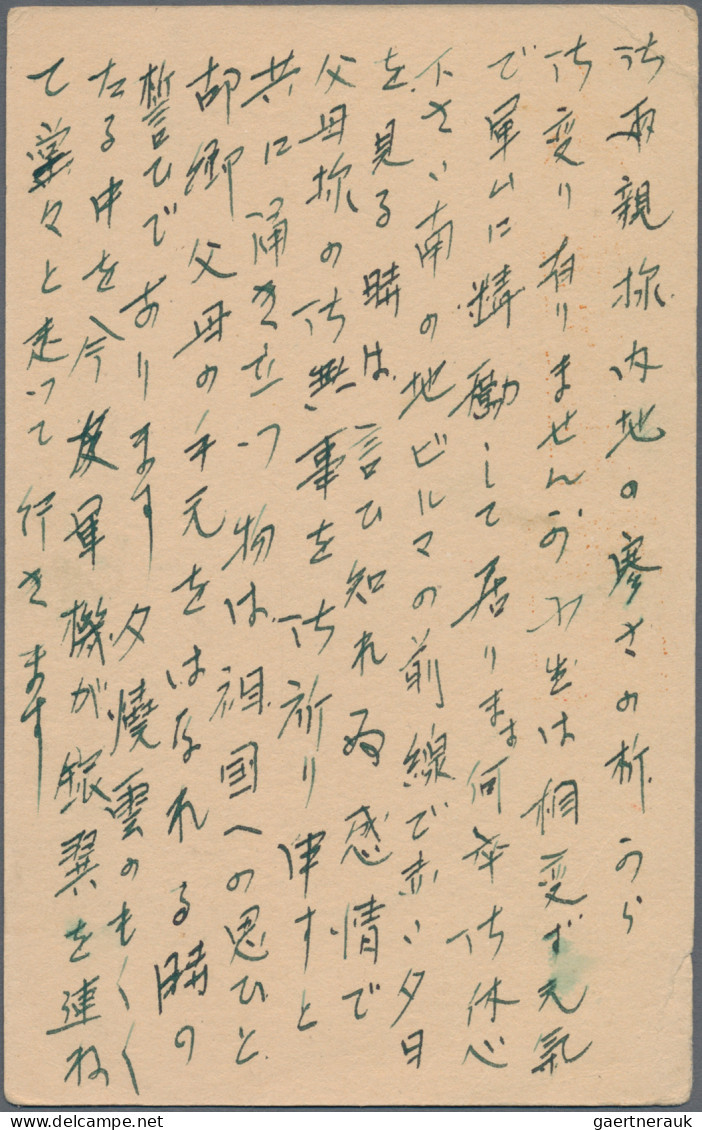 御両親様内地の寒さの折から
御変り有りませんか 小生は相変ず元気
で軍ムに精励して居ります何卒御休心
下さい南の地ビルマの前線で赤い夕日
を見る時は言ひ知れぬ感情で
父母様の御無事を御祈り申すと
共に涌き立つ物は祖国への思ひと
故郷父母の手元をはなれる時の
誓ひであります 夕焼雲のもくもく
たる中を今友軍機が銀翼を連ね
て堂々と走って行きます
gaertnerauk.com